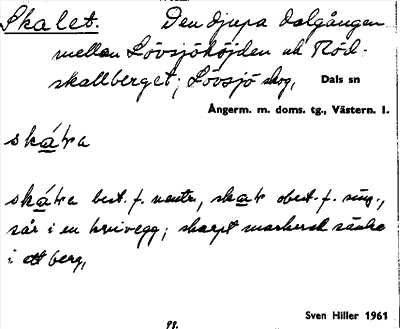 Skalet. Den djupa dalgången
mellan Lövsjöhöjden ock Röd-
skallberget; Lövsjö skog, Dals sn
Ångerm. m. doms. tg., Västern. l.
skátra
skátra best. f. neutr., skatr obest. f. sing.,
sår i en knivegg; skarpt markerad sänka
i ett berg,
Sven Hiller 1961
98.